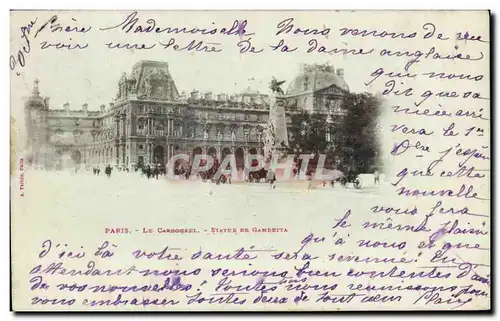 Chère Mademoiselle Nous venons de rece
voir une lettre de la dame anglaise
qui nous
dit que sa
mère arri
vera le 1er
Xbre j'espère
que cette
nouvelle
vous fera
le même plaisir
qu'à nous et que
d'ici là votre santé sera revenue. En
attendant nous serions bien contentes d'avoir
de vos nouvelles! Toutes nous nous réunissons pour
vous embrasser toutes deux de tout cœur
PARIS. - LE CARROUSEL. - STATUE DE GAMBETTA
CPARAMA